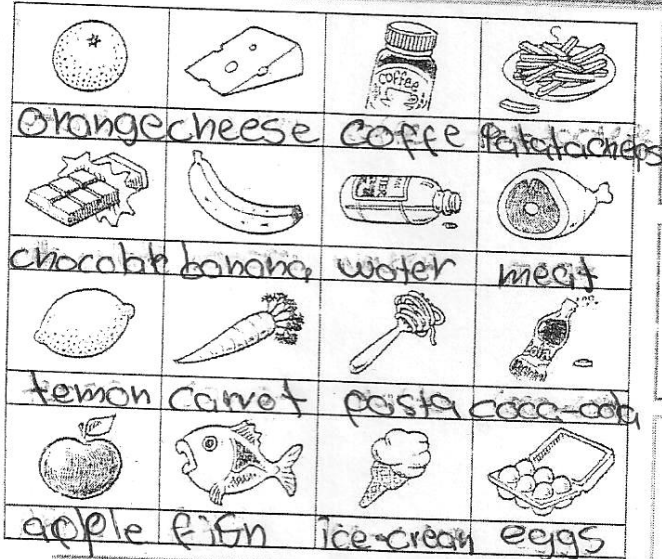 coffee
orange cheese coffe Patatacheps
chocolate banana water meat
lemon carrot pasta coca-cola
apple fish ice-cream eggs